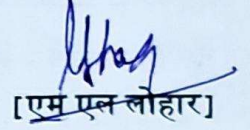 [एम एल लोहार]